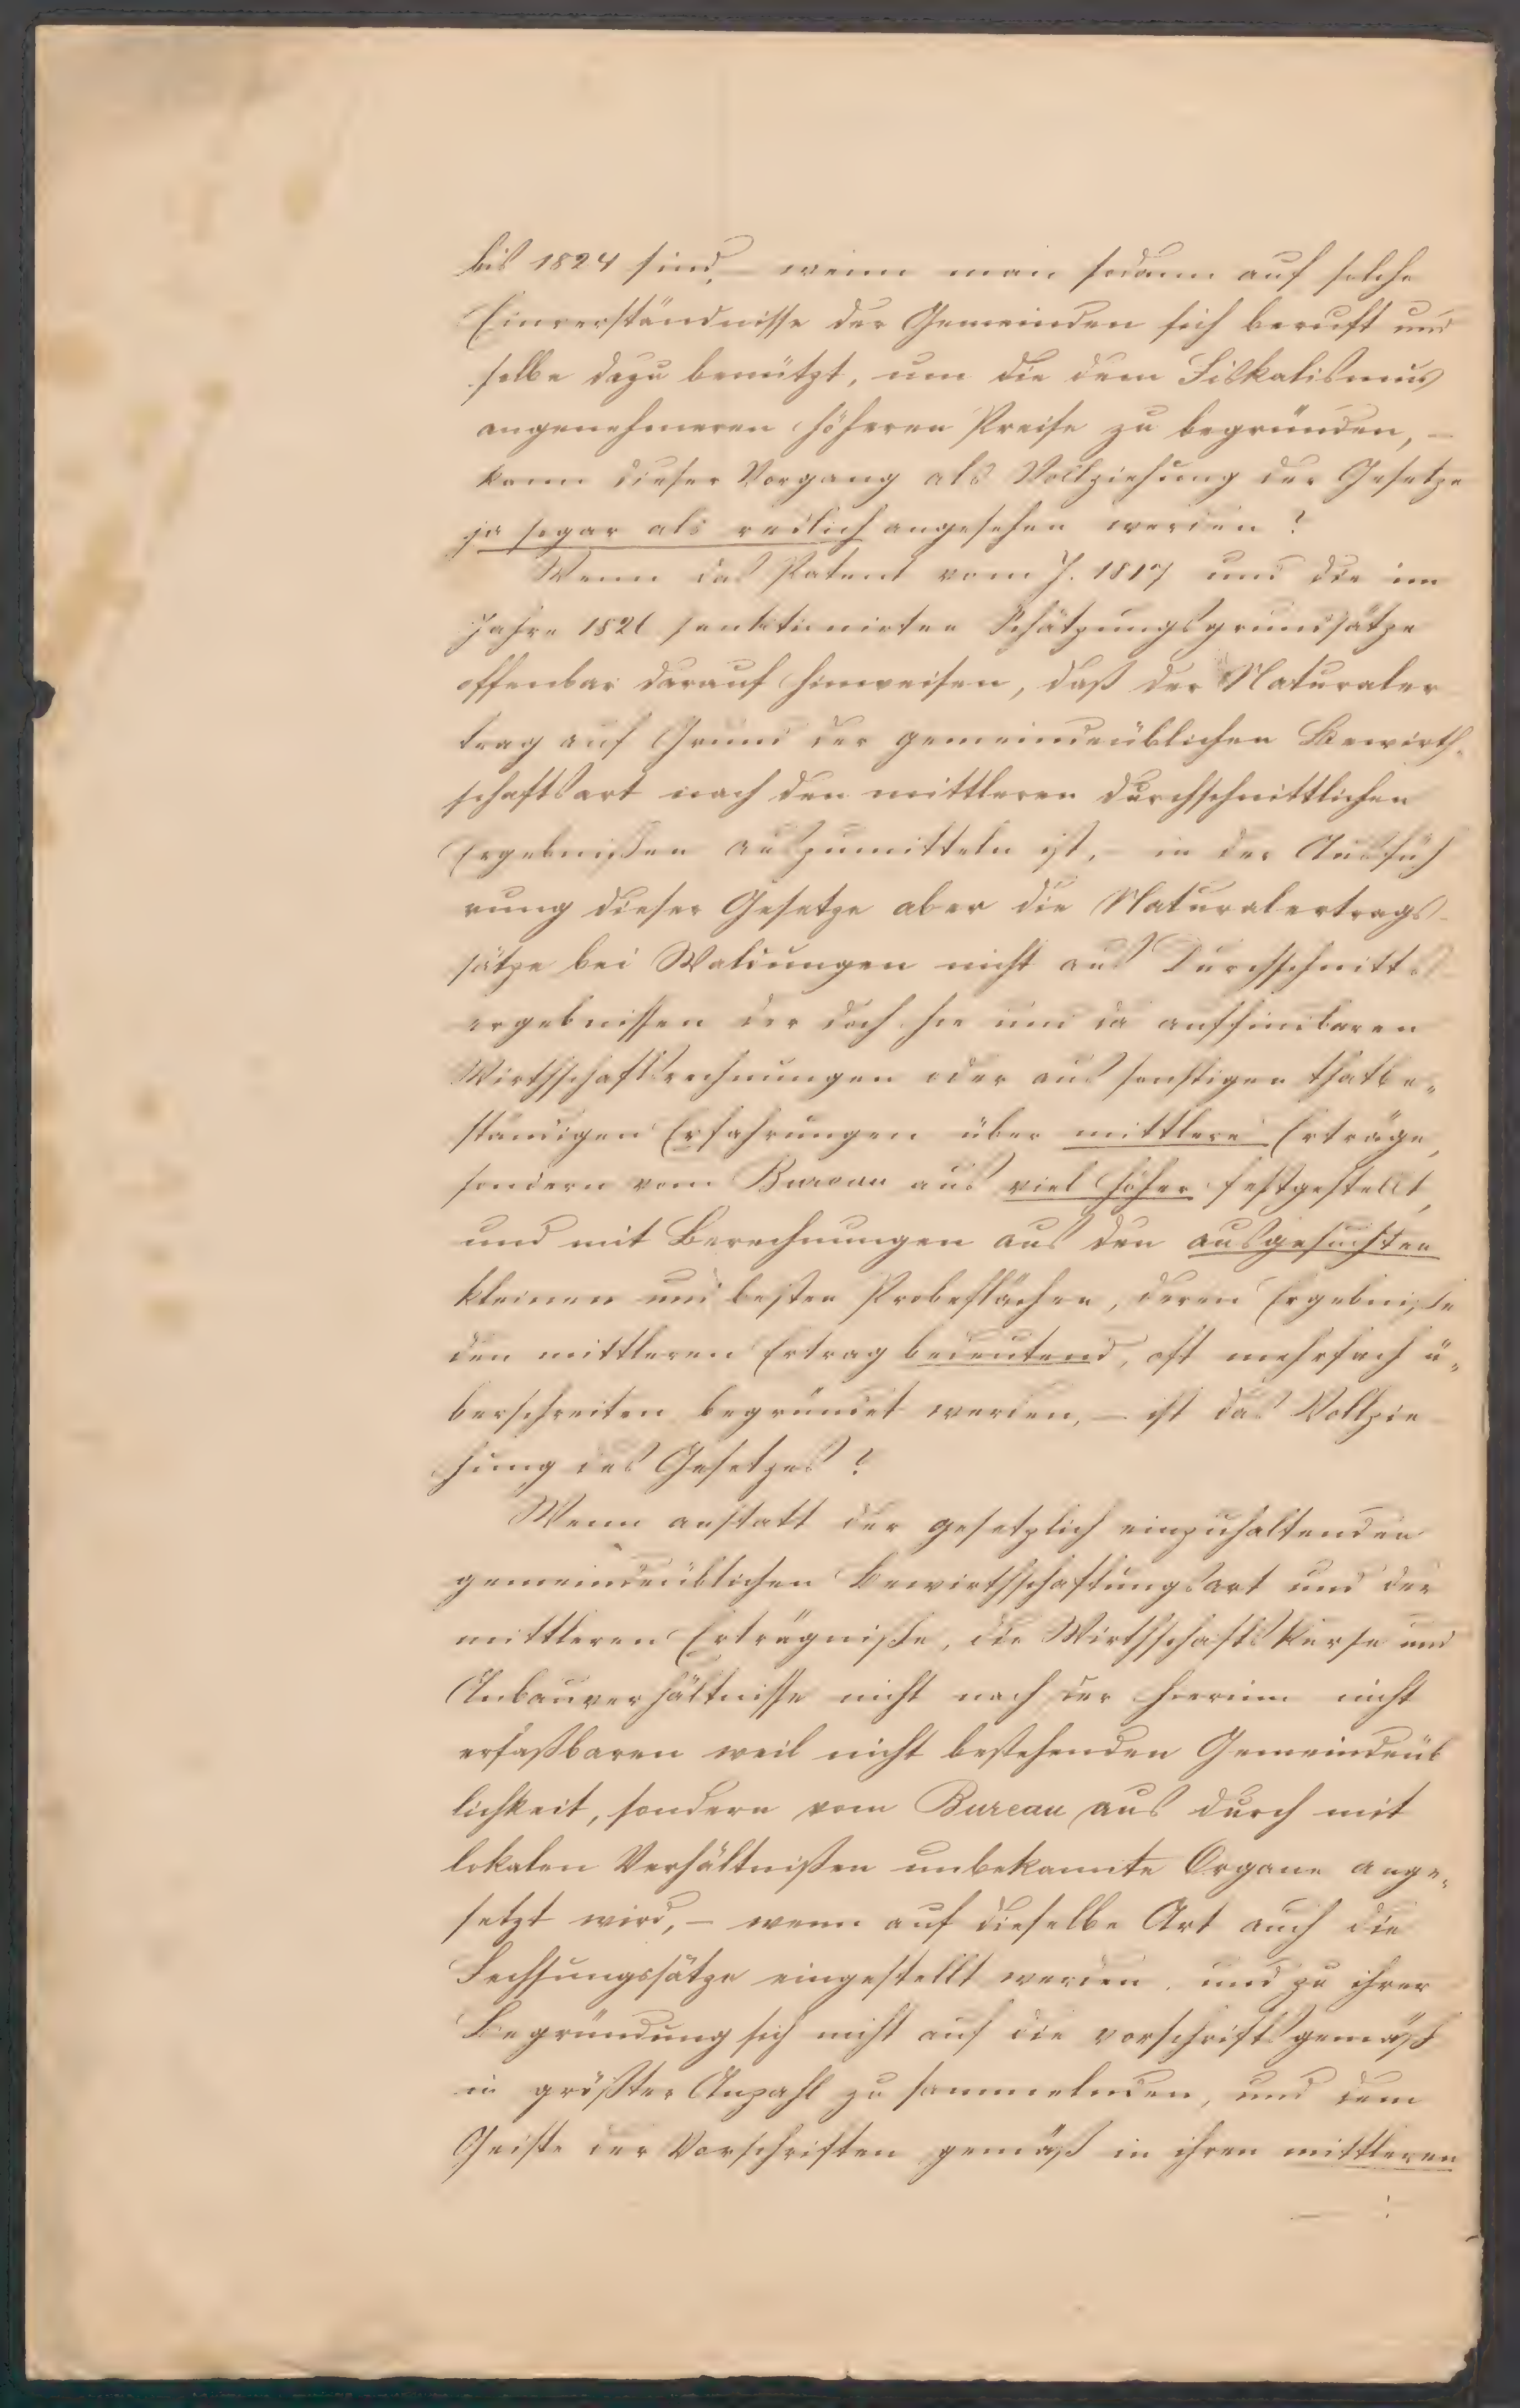 bis 1824 sind, – wenn man sodann auf solche
Einverständnisse der Gemeinden sich beruft und
selbe dazu benützt, um die dem Fiskalismus
angenehmeren höheren Preise zu begründen, –
kann dieser Vorgang als Vollziehung der Gesetze
ja sogar als redlich angesehen werden?
Wenn das Patent vom J. 1817 und die im
Jahre 1826 sanktionirten Schätzungsgrundsätze
offenbar darauf hinweisen, daß der Naturaler
trag auf Grund der gemeindeüblichen Bewirth-
schaftsart nach den mittleren durchschnittlichen
Ergebnißen auszumitteln ist, – in der Ausfüh
rung dieser Gesetze aber die Naturalertrags-
sätze bei Waldungen nicht aus Durchschnitts-
ergebnissen der doch hie und da auffindbaren
Wirthschaftsrechnungen oder aus sonstigen thatbe-
ständigen Erfahrungen über mittlere Erträge,
sondern vom Bureau aus viel höher festgestellt,
und mit Berechnungen aus den ausgesuchten
kleinen und besten Probeflächen, deren Ergebniße
den mittleren Ertrag bedeutend, oft mehrfach ü-
berschreiten begründet werden, – ist das Vollzie-
hung des Gesetzes?
Wenn anstatt der gesetzlich einzuhaltenden
gemeindeüblichen Bewirthschaftungsart und der
mittleren Erträgniße, die Wirthschaftskurse und
Anbauverhältnisse nicht nach der hierinn nicht
erfaßbaren weil nicht bestehenden Gemeindeüb
lichkeit, sondern vom Bureau aus durch mit
lokalen Verhältnißen unbekannte Organe ange-
setzt wird, – wenn auf dieselbe Art auch die
Fechsungssätze eingestellt werden, und zu ihrer
Begründung sich nicht auf die vorschriftsgemäß
in größter Anzahl zu sammelnden, und dem
Geiste der Vorschriften gemäß in ihren mittleren